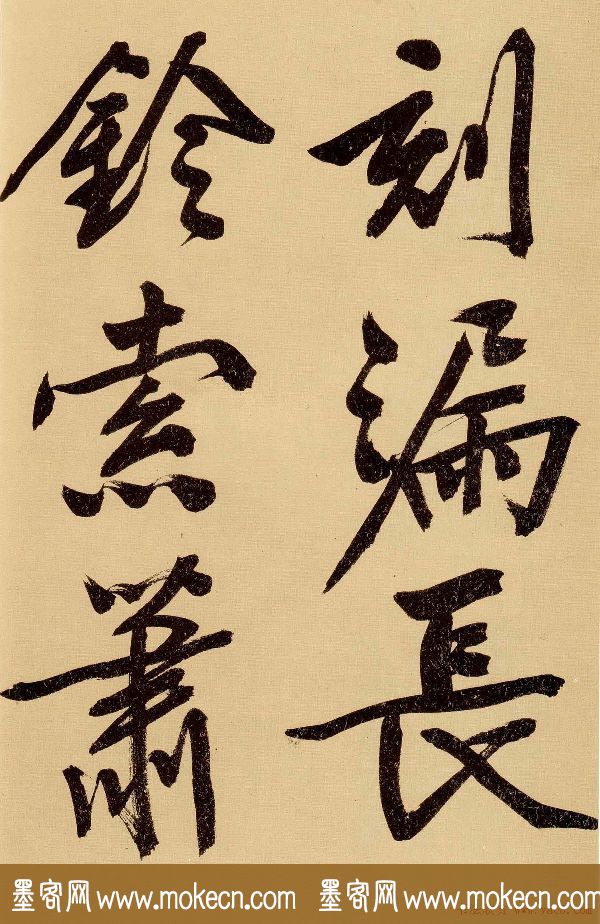 刻漏長
鈴索蕭
墨客网 www.mokecn.com 墨客网 www.mokecn.com